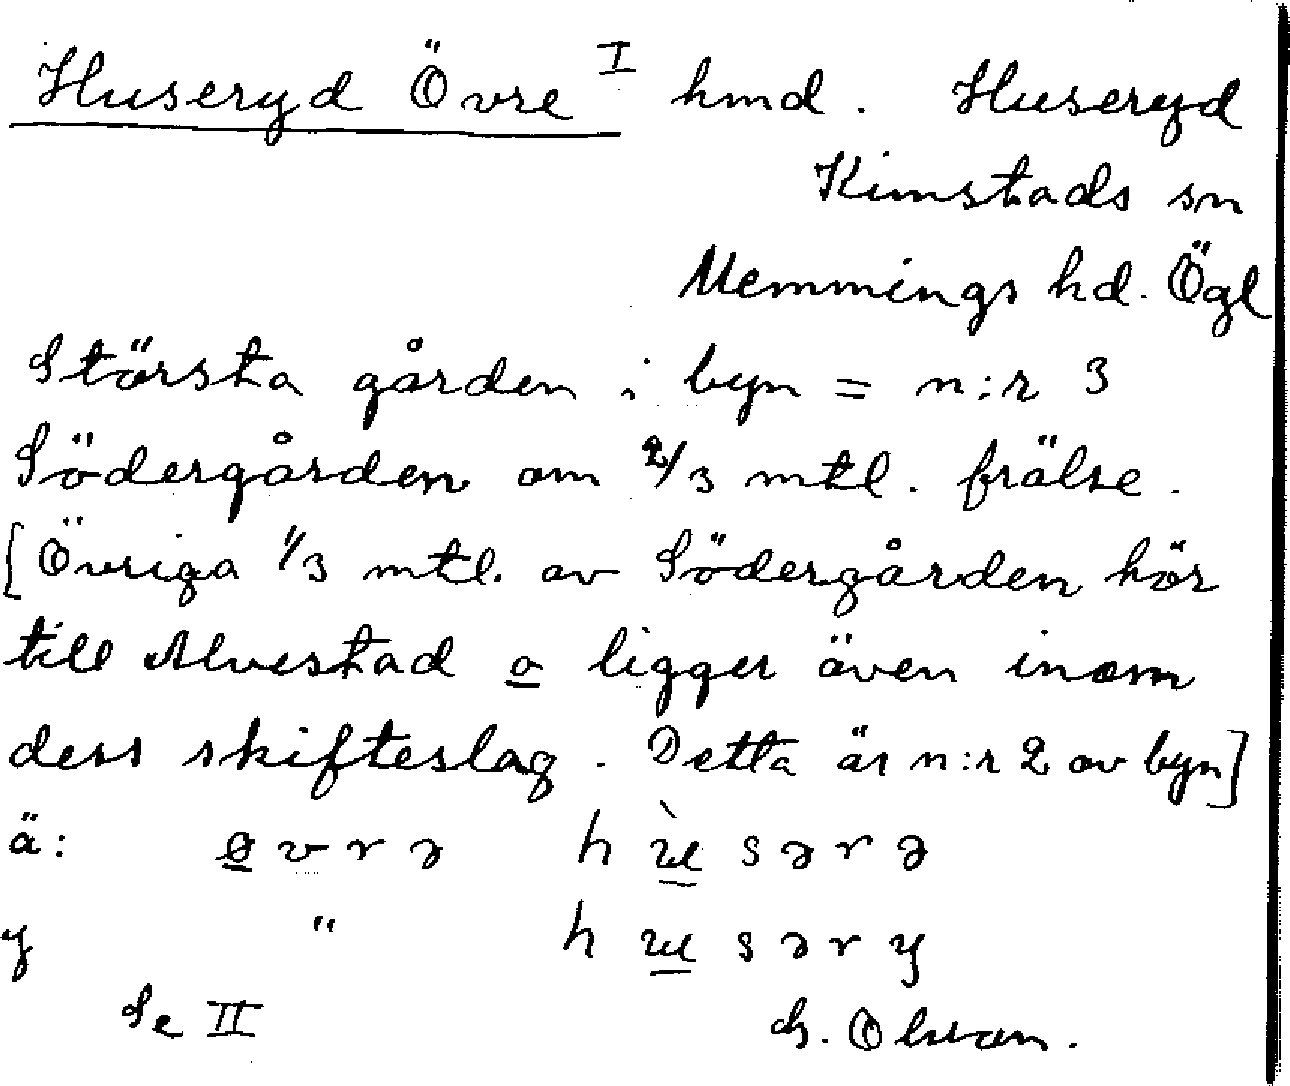 Huseryd Övre I hmd. Huseryd
Kimstads sn
Memmings hd. Ögl
Största gården i byn = n:r 3
Södergården om 2/3 mtl. frälse.
[Övriga 1/3 mtl. av Södergården hör
till Alvestad o ligger även inom
dess skifteslag. Detta är n:r 2 av byn]
ä: øvrə hùsərə
y " husəry
Se II G. Olsson.